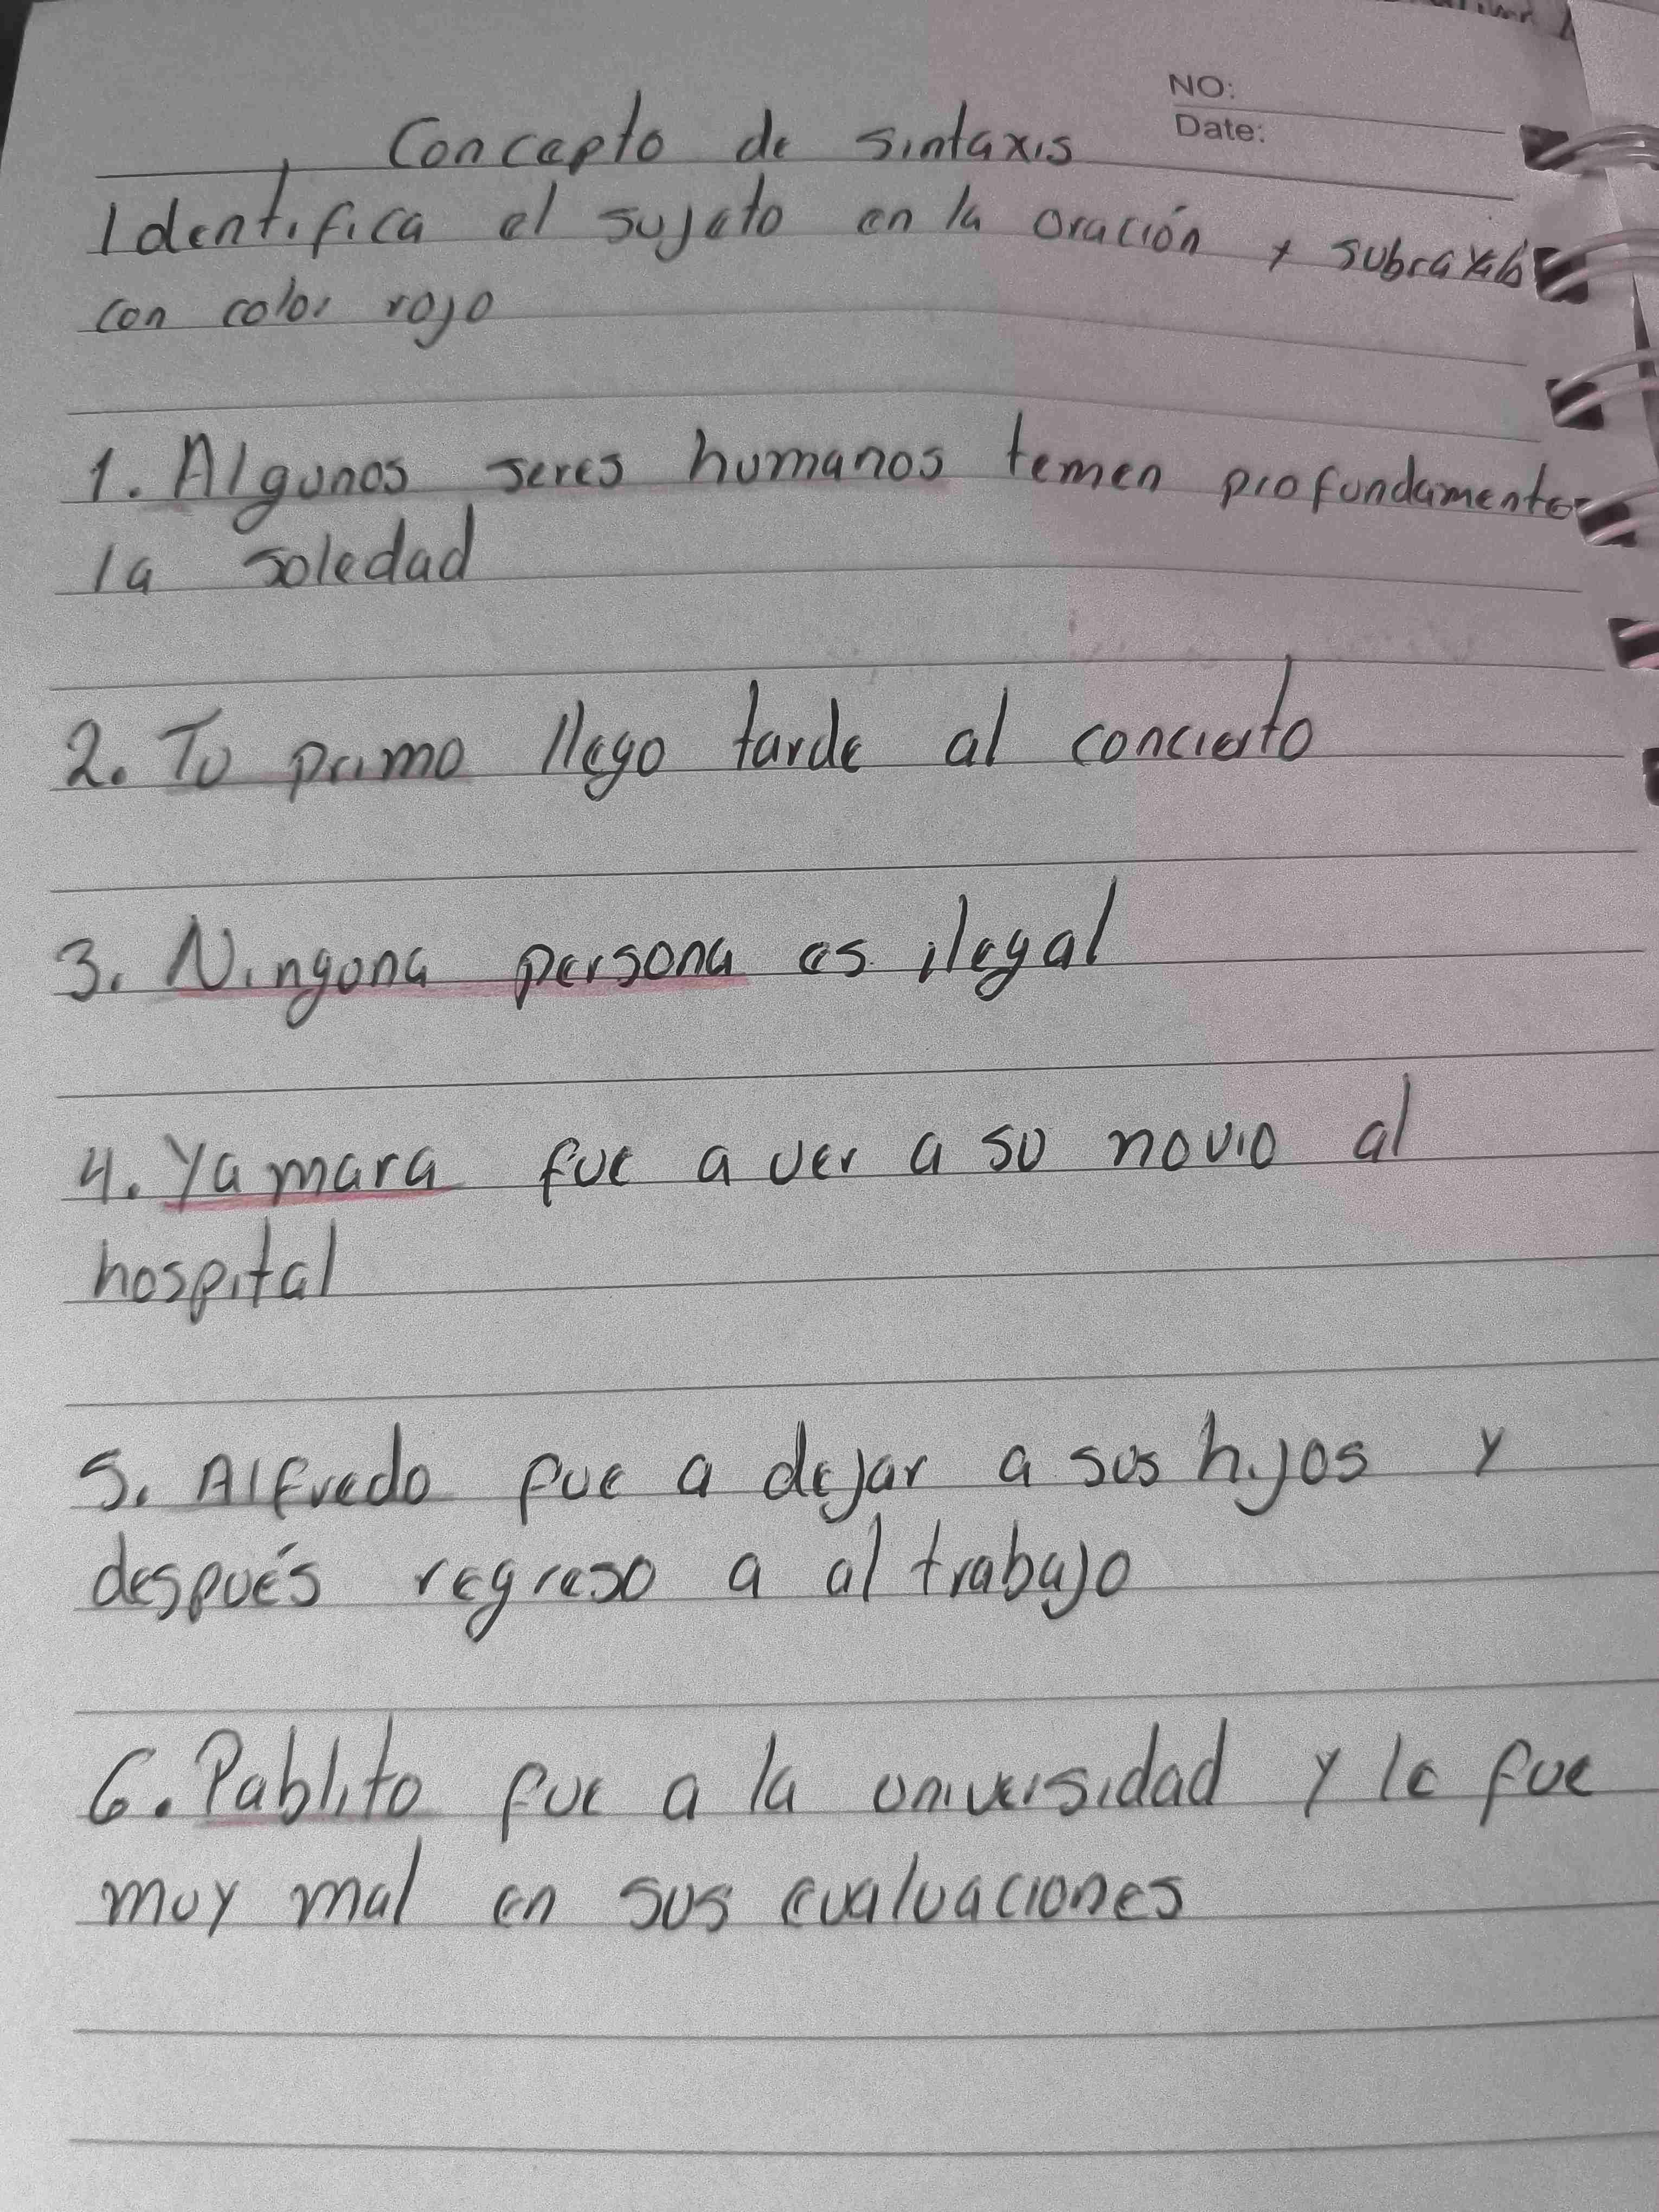 NO:
Date:
Concepto de sintaxis
Identifica el sujeto en la oración y subrayalo
con color rojo
1. Algunos seres humanos temen profundamente
la soledad
2. Tu primo llego tarde al concierto
3. Ninguna persona es ilegal
4. Yamara fue a ver a su novio al
hospital
5. Alfredo fue a dejar a sus hijos y
después regreso a al trabajo
6. Pablito fue a la universidad y le fue
muy mal en sus evaluaciones